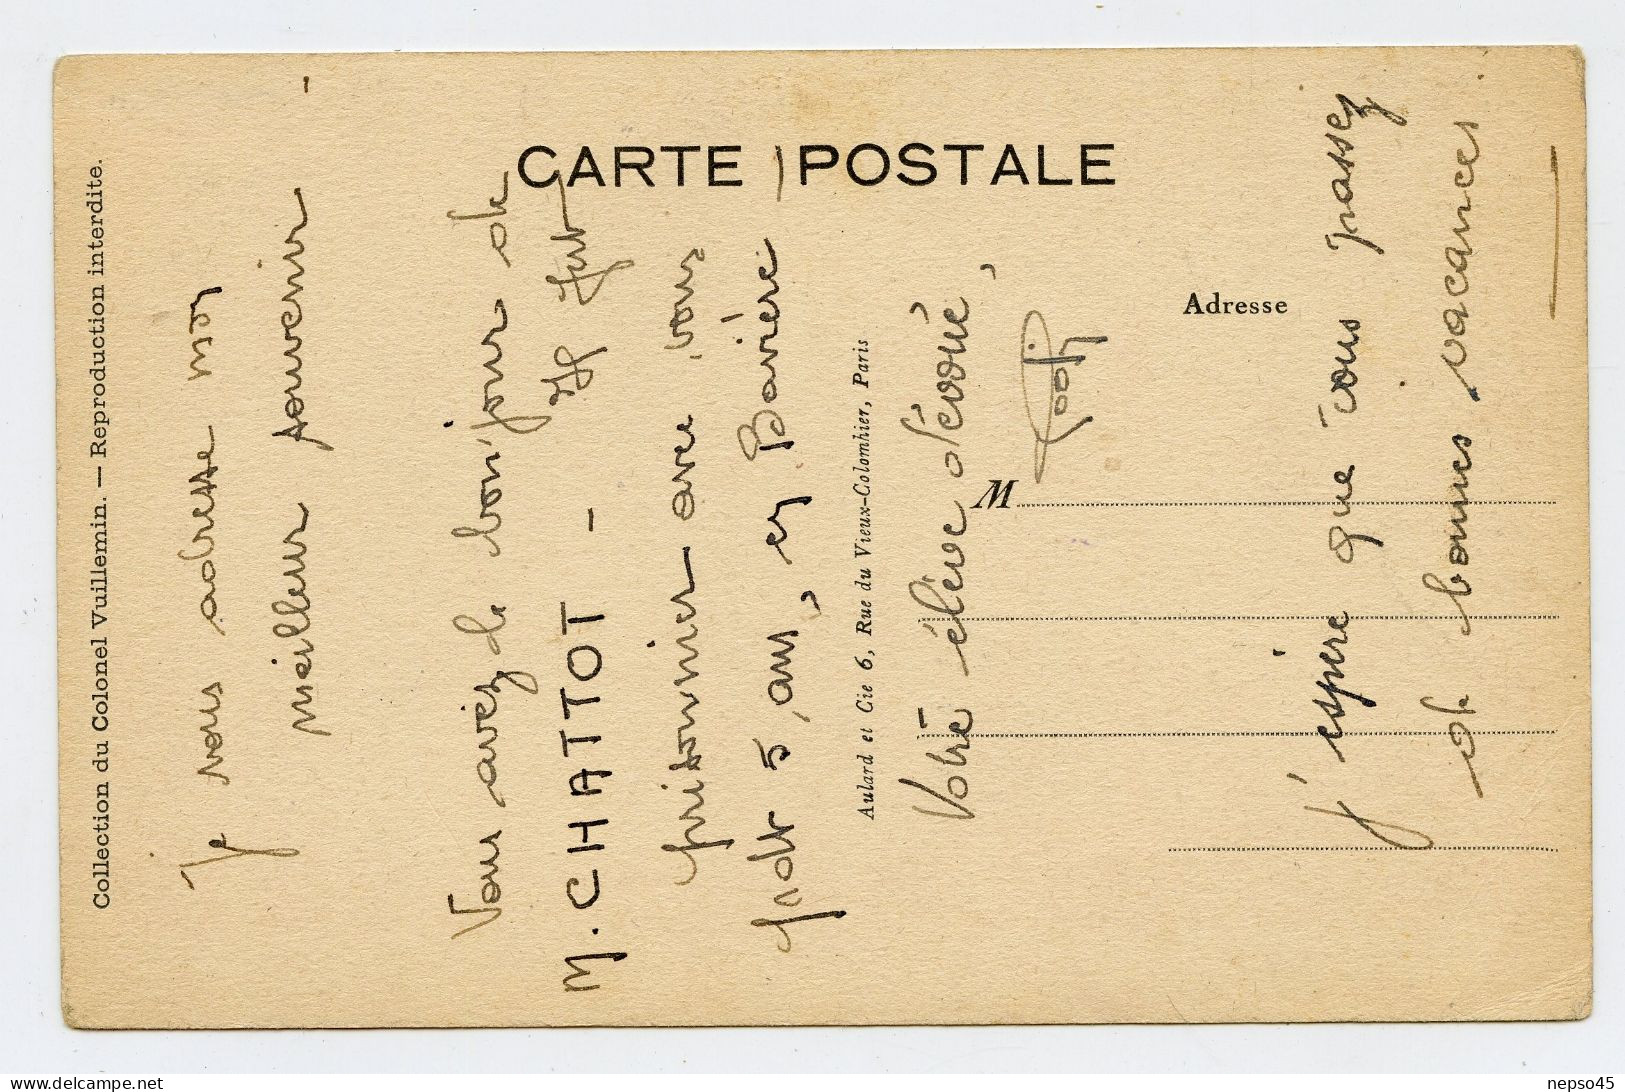 CARTE POSTALE
Collection du Colonel Vuillemin. — Reproduction interdite.
Je vous adresse mon
meilleur souvenir -
Vous avez le bonjour de
M. CHATTOT - Il fut
prisonnier avec vous
pdt 5 ans, en Bavière
Aulard et Cie 6, Rue du Vieux-Colombier, Paris
Votre élève dévoué,
Adresse
M
j'espère que vous passez
de bonnes vacances.
nepso45